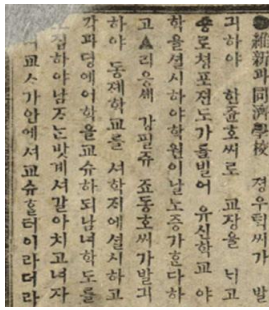 ●維新과同濟學校 경우턱씨가 발
긔하야 한쥰호씨로 교장을
죵로청포젼도가를빌어 유신학교 야
학을셜시하야학원이날노증가혼다하
고▲리응쎄 강필쥬 죠동호씨가발긔
하야 동졔학교를 셔학직에셜시하고
각파뎡에어학을교슈하되남녀학도를
집하야남ᄌᆞᄂᆞᆫ밧게셔갈아치고녀자
교ᄉᆞ가안에셔교슈ᄒᆞᆯ터이라더라